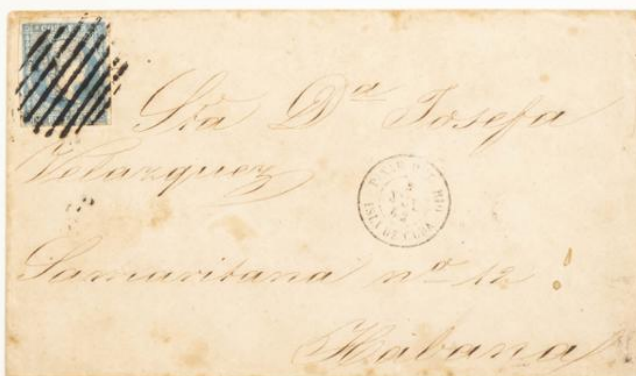 Sta Dª Josefa
Velazquez
PINAR DEL RIO
ISLA DE CUBA
Samaritana nº 12
Habana